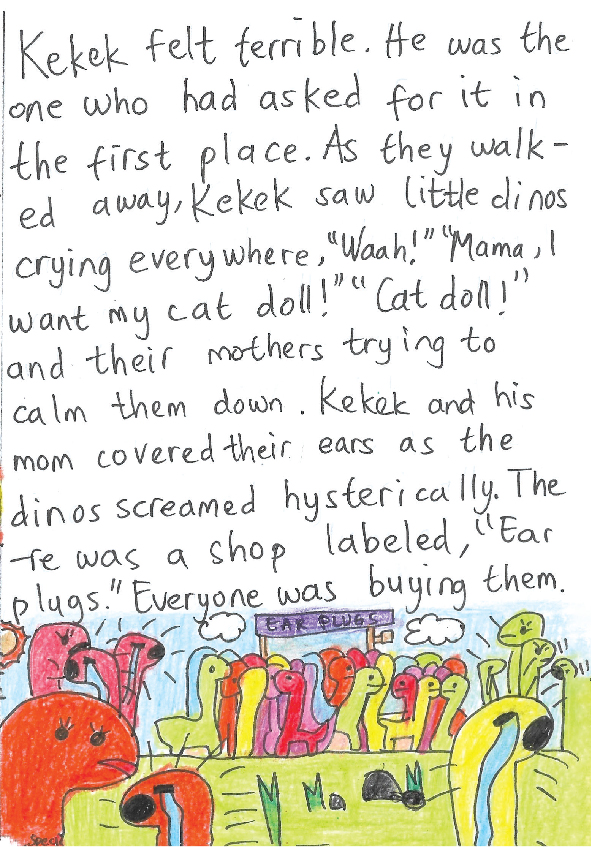 Kekek felt terrible. He was the
one who had asked for it in
the first place. As they walk-
ed away, Kekek saw little dinos
crying everywhere, "Waah!" "Mama, I
want my cat doll!" "Cat doll!"
and their mothers trying to
calm them down. Kekek and his
mom covered their ears as the
dinos screamed hysterically. The
-re was a shop labeled, "Ear
plugs." Everyone was buying them.
EAR PLUGS